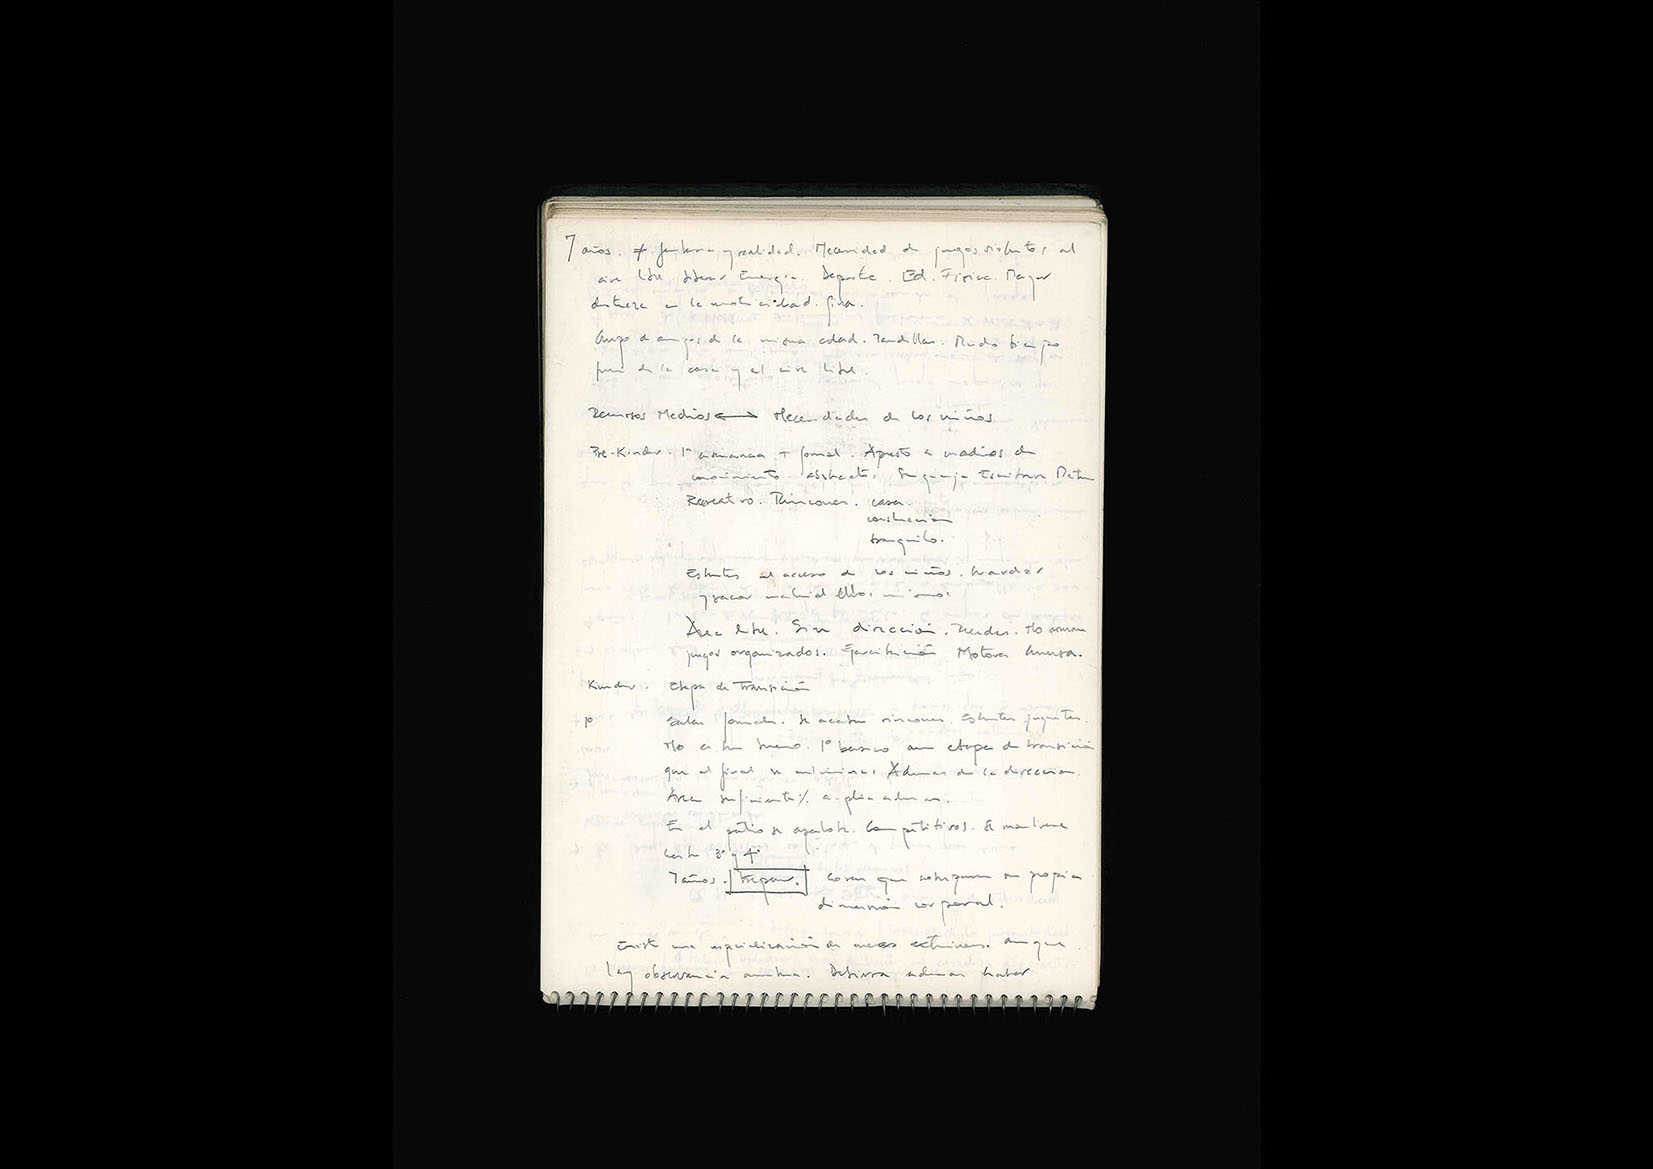 7 años. ≠ fantasia y realidad. Necesidad de juegos violentos al
aire libre. liberar Energia. Deporte. Ed. Fisica. Mayor
destreza en la motricidad. fina.
Grupo de amigos de la misma edad. Pandillas. Mucho tiempo
fuera de la casa y al aire libre.
Recursos Medios ⟷ Necesidades de los niños
Pre-Kinder. 1ª enseñanza + formal. Apresto a medios de
conocimiento abstractos Lenguaje Escritura Matem
Recreativo. Rincones. casa.
construccion
tranquilo.
Estantes al acceso de los niños. Guardar
y sacar material Ellos mismos
Area libre. Sin direccion. Ruedas. No arman
juegos organizados. Ejercitación Motora Gruesa.
Kinder. Etapa de Transición
1º Salas formales. Se acaban rincones. Estantes juguetes.
No es tan bueno. 1º basico aun etapa de transición
que al final se Ademas de la direccion.
Area suficiente/. amplia ademas.
En el patio se Competitivos. Se mantiene
hasta 3º y 4º
7 años. trepar. Cosas que sobrepasen su propia
dimensión corporal.
Existe una especialización de areas exteriores. aunque
hay observancia Debiera ademas haber